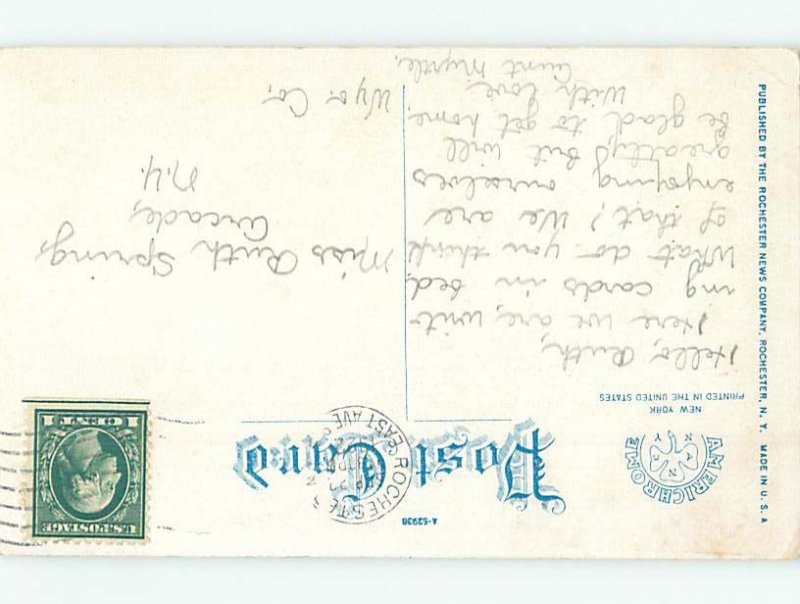 AMERICHROME
NEW YORK
PRINTED IN THE UNITED STATES
A-62938
Post Card
ROCHESTER
EAST AVE
U.S. POSTAGE
1 CENT 1
Hello, Ruth,
Here we are, writ-
ing cards in bed.
What do you think
of that? We are
enjoying ourselves
greatly, but will
be glad to get home.
With love,
Aunt Myrtle.
Miss Ruth Spring,
Arcade,
N.Y.
Wyo. Co.
PUBLISHED BY THE ROCHESTER NEWS COMPANY, ROCHESTER, N. Y. MADE IN U. S. A